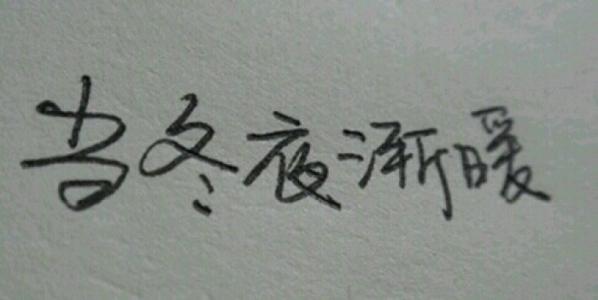 当冬夜渐暖